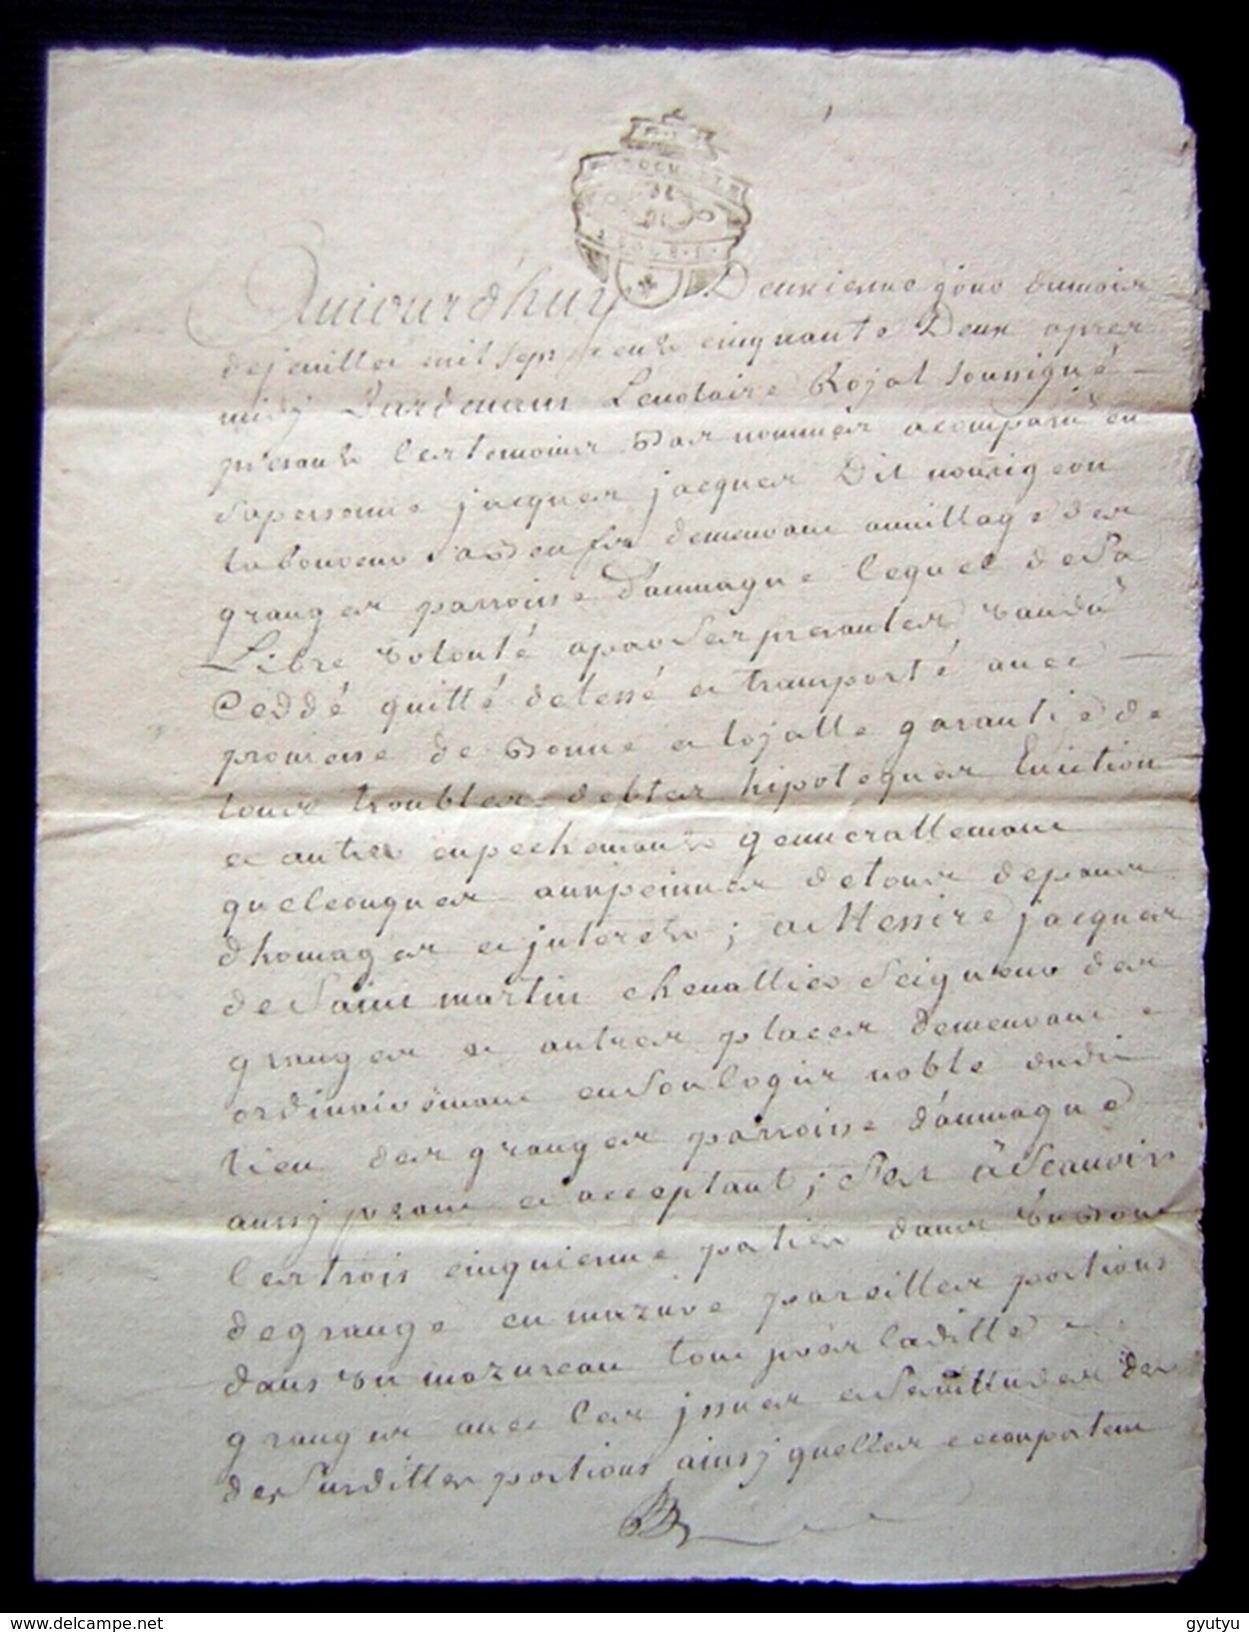 Aujourd'huy Deuxienne jour dumois
dejeuillet mil sept cent cinquante Deux apres
midy Pardevant Lenotaire Royal soussigné
presants les temoins bas nommés a comparû en
sa personne jacques jacques Dit nourigeon
laboureur demeurant auvillage des
granges parroisse d'aumagne lequel de sa
Libre volonté a par ses presantes vandû
Ceddé quitté delessé et transporté avec
promesse de bonne et loyalle garantie de
tous troubles debtes hipoteques Eviction
et autres enpechemants gennerallemant
quelconques aux peinnes de tous depans
dhomages et jnterets ; a Messire jacques
de Saint martin chevallier Seigneur des
granges et autres places demeurant
ordinairemant en son logis noble dudit
lieu des granges parroisse d'aumagne
aussy presant et acceptant ; sest à Scavoir
les trois cinquienne parties dans un bout
de grange en mazure pareilles portions
dans un mazureau tout pres ladille
granges avec les jssues et servittudes des
des surdittes portions ainsy quelles ce comportent
delcampe.net
gyutyu